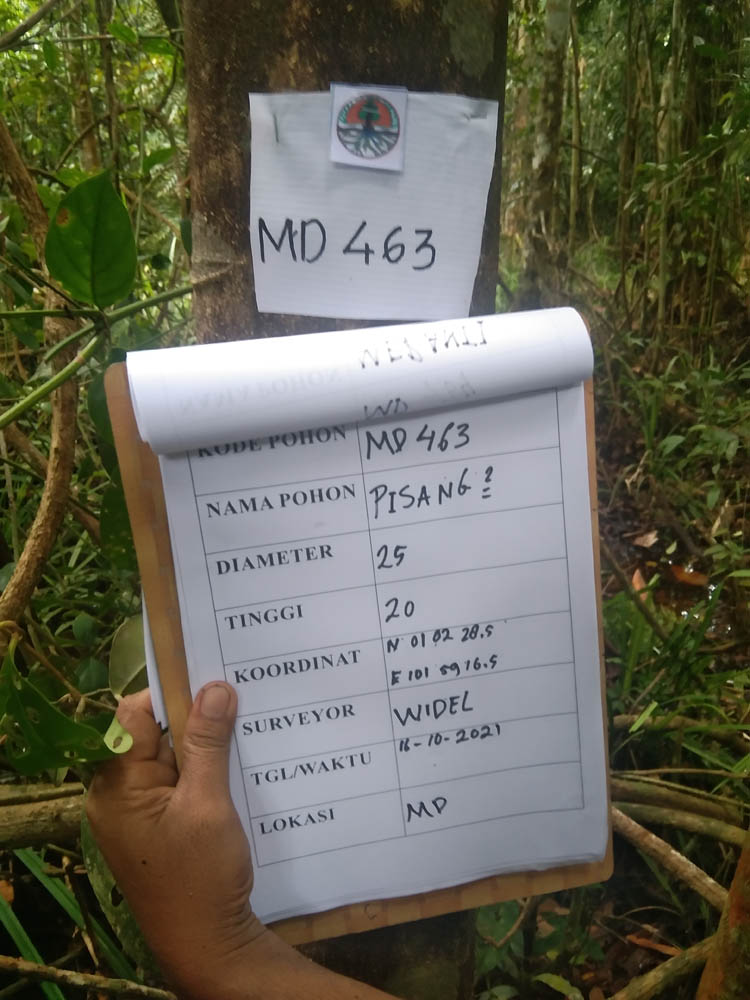 MD 463
KODE POHON MD 463
NAMA POHON PISANG 2
DIAMETER 25
TINGGI 20
KOORDINAT N 01 02 28.5
E 101 59 16.5
SURVEYOR WIDEL
TGL/WAKTU 16-10-2021
LOKASI MD